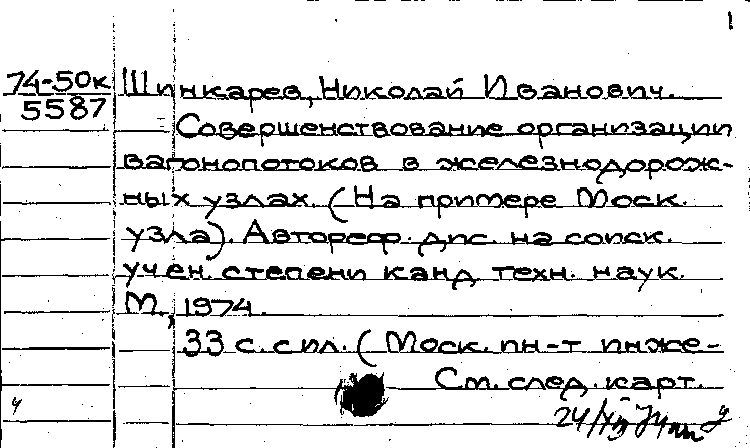 1
74-50к
5587
Шинкарев, Николай Иванович.
Совершенствование организации
вагонопотоков в железнодорож-
ных узлах. (На примере Моск.
узла). Автореф. дис. на соиск.
учен. степени канд техн. наук.
М., 1974.
33 с. с ил. (Моск. ин-т инже-
См. след. карт.
24/